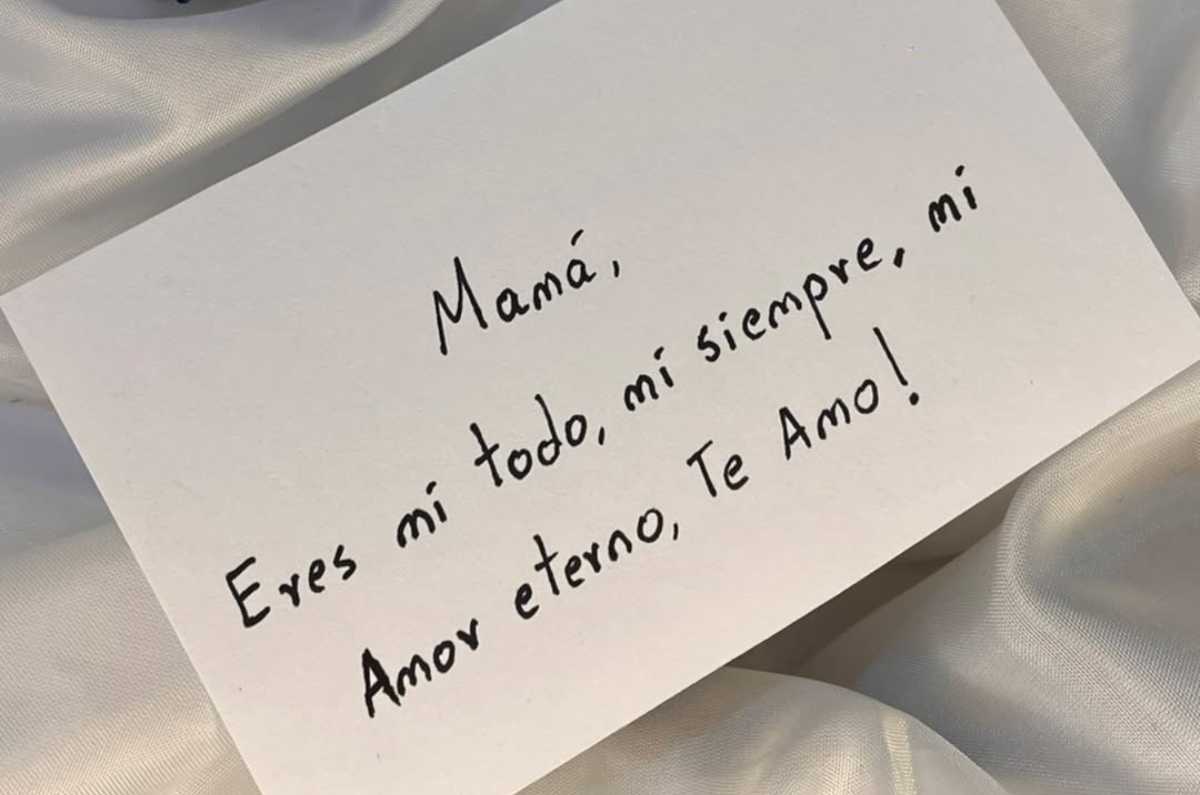 Mamá,
Eres mi todo, mi siempre, mi
Amor eterno, Te Amo!